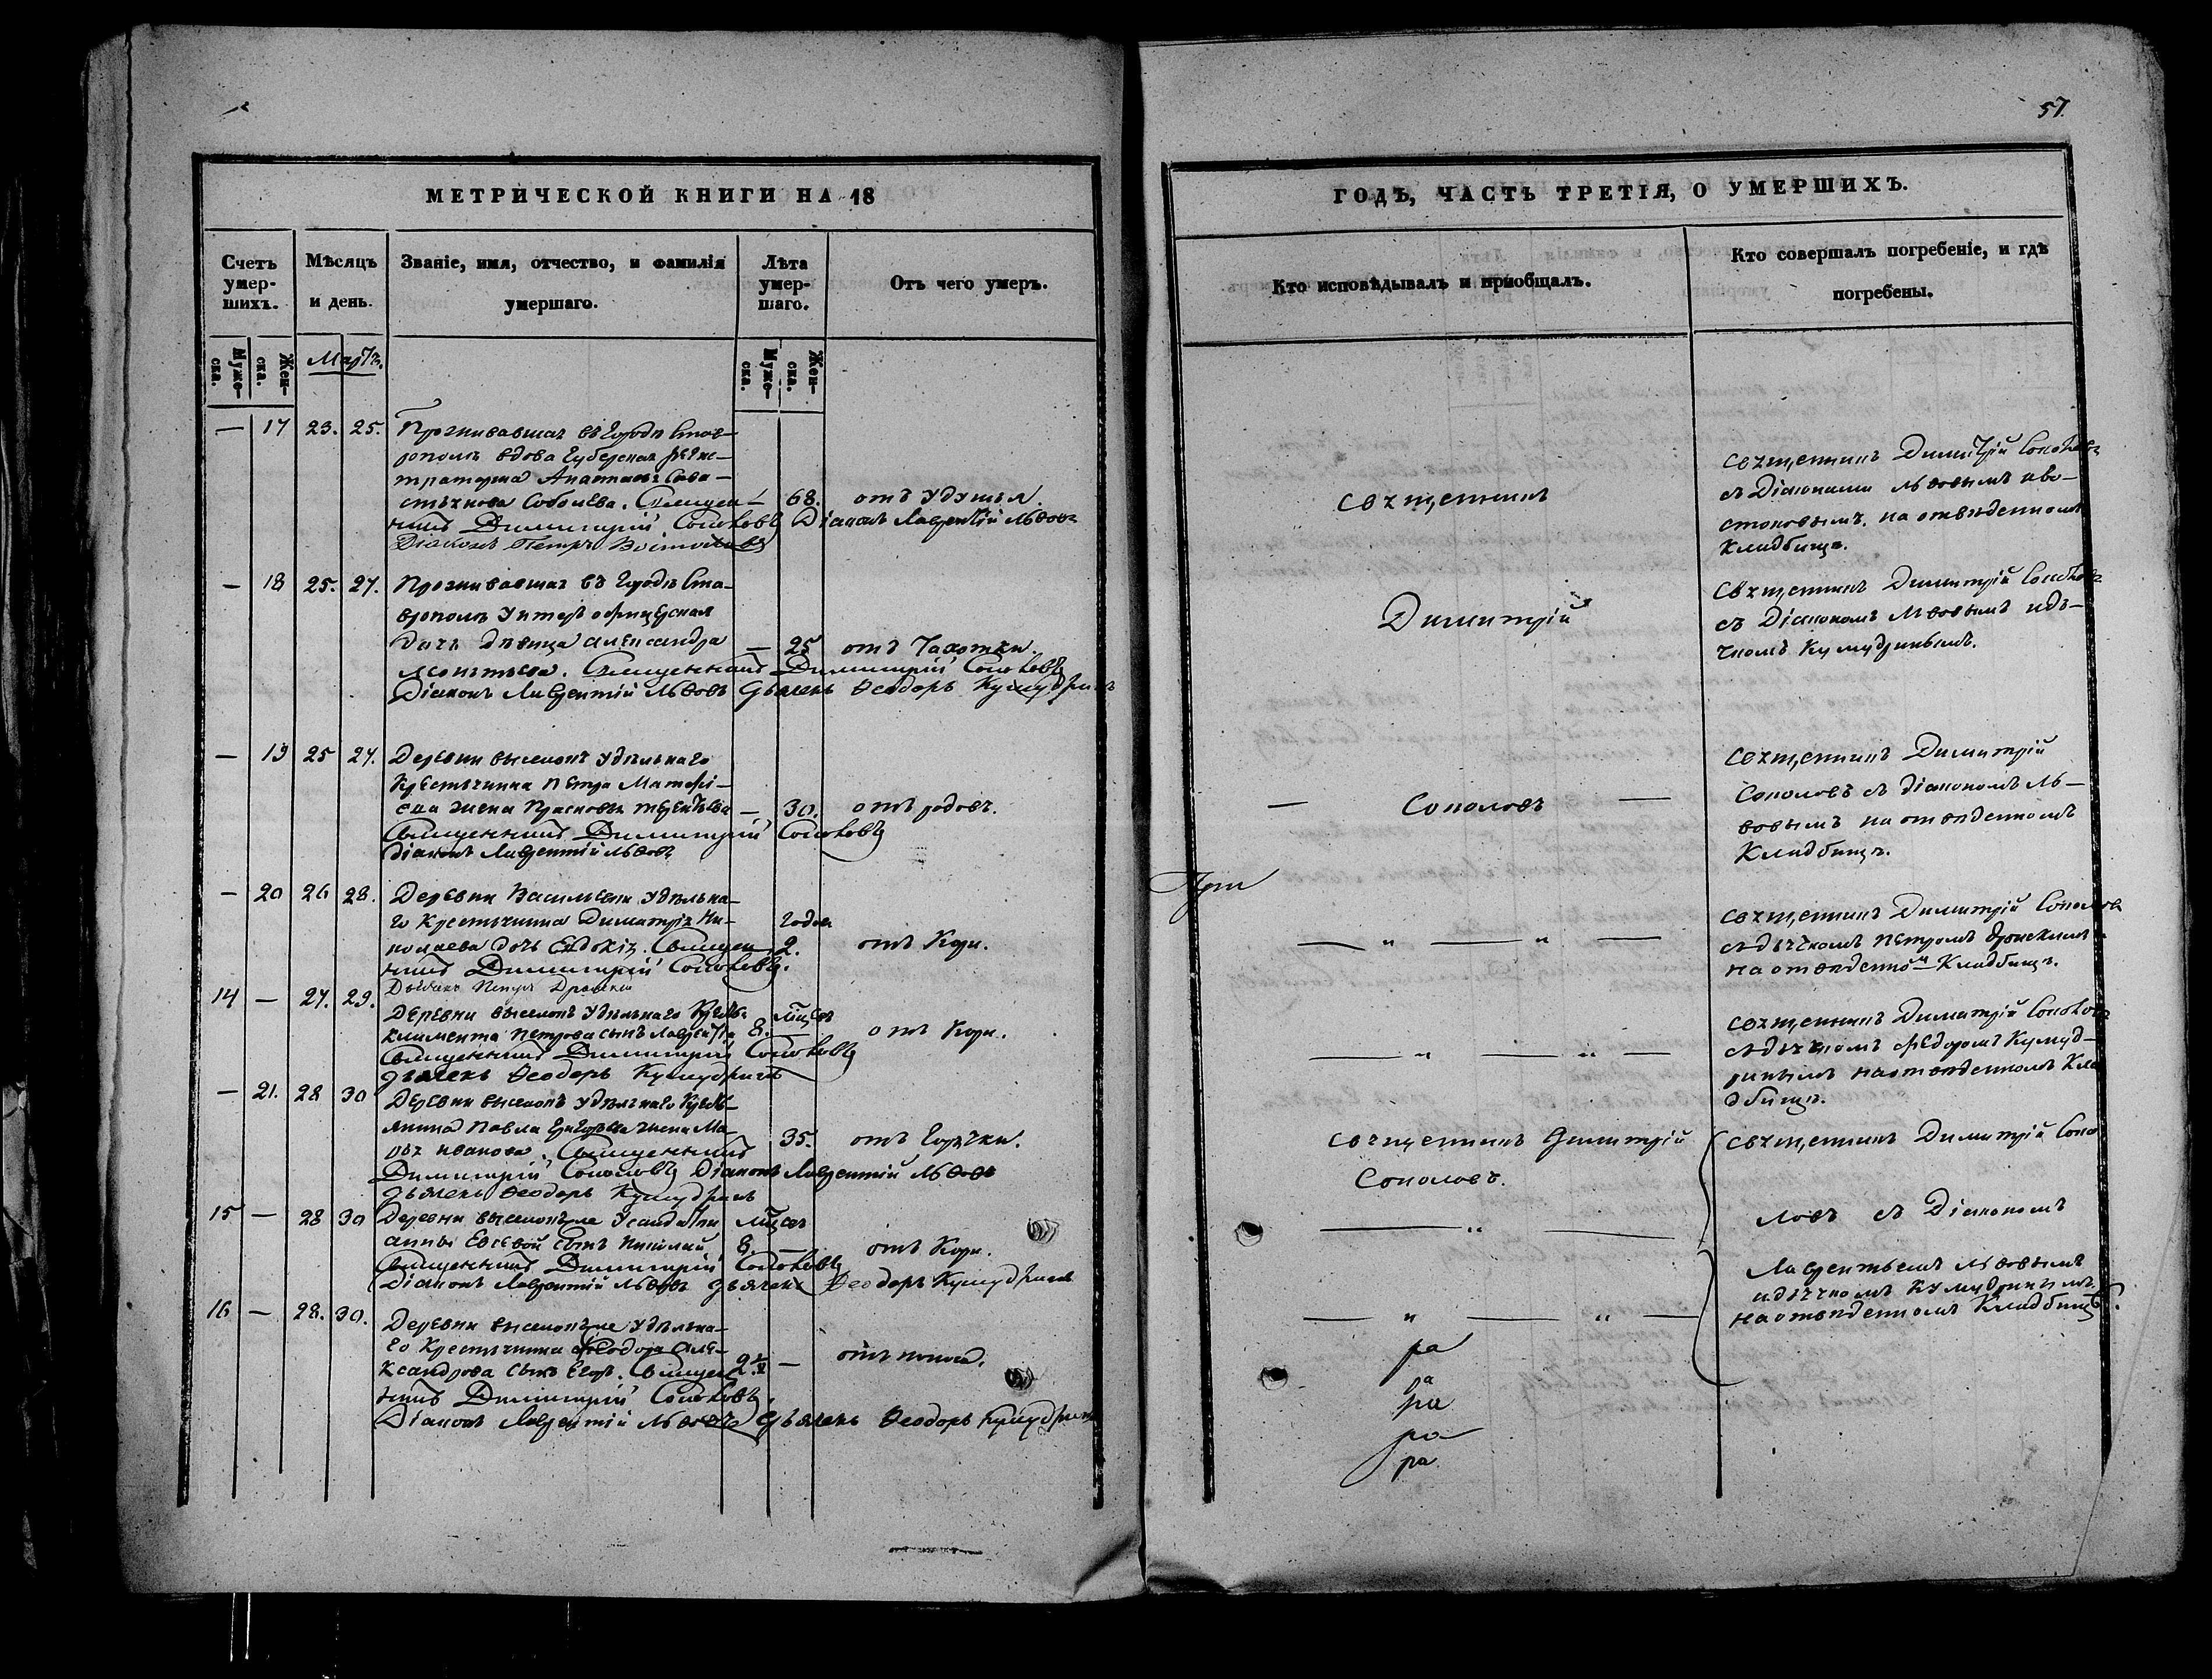 57.
МЕТРИЧЕСКОЙ КНИГИ НА 18
ГОДЪ, ЧАСТЬ ТРЕТІЯ, О УМЕРШИХЪ.
Счетъ умер-шихъ.
Мѣсяцъ и день.
Званіе, имя, отчество, и фамилія умершаго.
Лѣта умер-шаго.
Отъ чего умеръ.
Кто исповѣдывалъ и пріобщалъ.
Кто совершалъ погребеніе, и гдѣ погребены.
Муже-ска.
Жен-ска.
Муже-ска.
Жен-ска.
Мартъ.
— 17 23. 25. Проживавшая въ Городѣ Став-
рополѣ вдова Губерская регис-
траторша
Соболева. Священ-
— 68. отъ удушья.
никъ Димитрій Соколовъ Діаконъ Лаврентій Львовъ
Діаконъ Петръ
Священникъ
Священникъ Димитрій Соколовъ
съ Діаконами Львовымъ и Во-
стоковымъ. на отведенномъ
Кладбище.
— 18 25. 27. Проживавшая въ Городѣ Ста-
врополѣ унтеръ офицерская
дочь дѣвица Александра
— 25 отъ Чахотки.
Леонтьева. Священникъ Димитрій Соколовъ
Діаконъ Лаврентій Львовъ Дьячекъ Ѳеодоръ Кумудринъ
Димитрій
Священникъ Димитрій Соколовъ
съ Діакономъ Львовымъ и дь-
чкомъ Кумудринымъ.
— 19 25 27. Деревни выселокъ удѣльнаго
Крестьянина Петра Матфѣ-
ева жена Прасковья Терентьева
— 30. отъ родовъ.
Священникъ Димитрій Соколовъ
Діаконъ Лаврентій Львовъ
— Соколовъ —
Священникъ Димитрій
Соколовъ съ діакономъ Ль-
вовымъ на отведенномъ
Кладбищѣ.
При
— 20 26 28. Деревни Васильевки удѣльна-
го Крестьянина Димитрія Ни-
колаева дочь Евдокія. Священ-
годов 2. отъ Кори.
никъ Димитрій Соколовъ.
Дьячекъ Петръ
— „ — „ —
Священникъ Димитрій Соколовъ
съ дьячкомъ Петромъ
на отведенномъ Кладбищѣ.
14 — 27. 29.
Деревни выселокъ удѣльнаго Крест.
Климента Петрова сынъ Лаврентій
мѣсяц 8. — отъ Кори.
Священникъ Димитрій Соколовъ
Дьячекъ Ѳеодоръ Кумудринъ
— „ — „ —
Священникъ Димитрій Соколовъ
съ дьячкомъ Ѳедоромъ Кумуд-
ринымъ на отведенномъ Кла
дбищѣ.
— 21. 28 30 Деревни выселокъ удѣльнаго Кресть-
янина Павла Григорьева жена Ма-
рья Иванова. Священникъ
35. отъ Горячки.
Димитрій Соколовъ Діаконъ Лаврентій Львовъ
Дьячекъ Ѳеодоръ Кумудринъ
Священникъ Димитрій
Соколовъ.
Священникъ Димитрій Соко
15 — 28 30 Деревни выселокъ
Анны сынъ Николай
мѣсяц 8. — отъ Кори.
Священникъ Димитрій Соколовъ
Діаконъ Лаврентій Львовъ Дьячекъ Ѳеодоръ Кумудринъ
— „ —
ловъ съ Діакономъ
Лаврентьемъ Львовымъ
и дьячкомъ Кумудринымъ
на отведенномъ Кладбищѣ.
16 — 28. 30. Деревни выселокъ удѣльна-
го Крестьянина Ѳеодора Але-
ксандрова сынъ Егоръ. Священ-
— отъ поноса.
никъ Димитрій Соколовъ
Діаконъ Лаврентій Львовъ Дьячекъ Ѳеодоръ Кумудринъ
— „ — „ —
ра
ра
ра
ра
ра